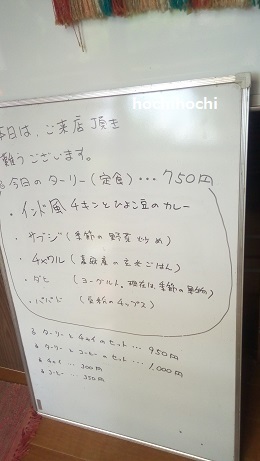 hochihochi
本日は、ご来店頂き
難うございます。
今日のターリー(定食)…750円
・インド風チキンとひよこ豆のカレー
・サブジ(季節の野菜炒め)
・チャワル(真庭産の玄米ごはん)
・ダヒ(ヨーグルト。現在は季節の果物)
・パパド(豆粉のチップス)
ターリーとチャイのセット…950円
ターリーとコーヒーのセット…1,000円
チャイ…300円
コーヒー…350円